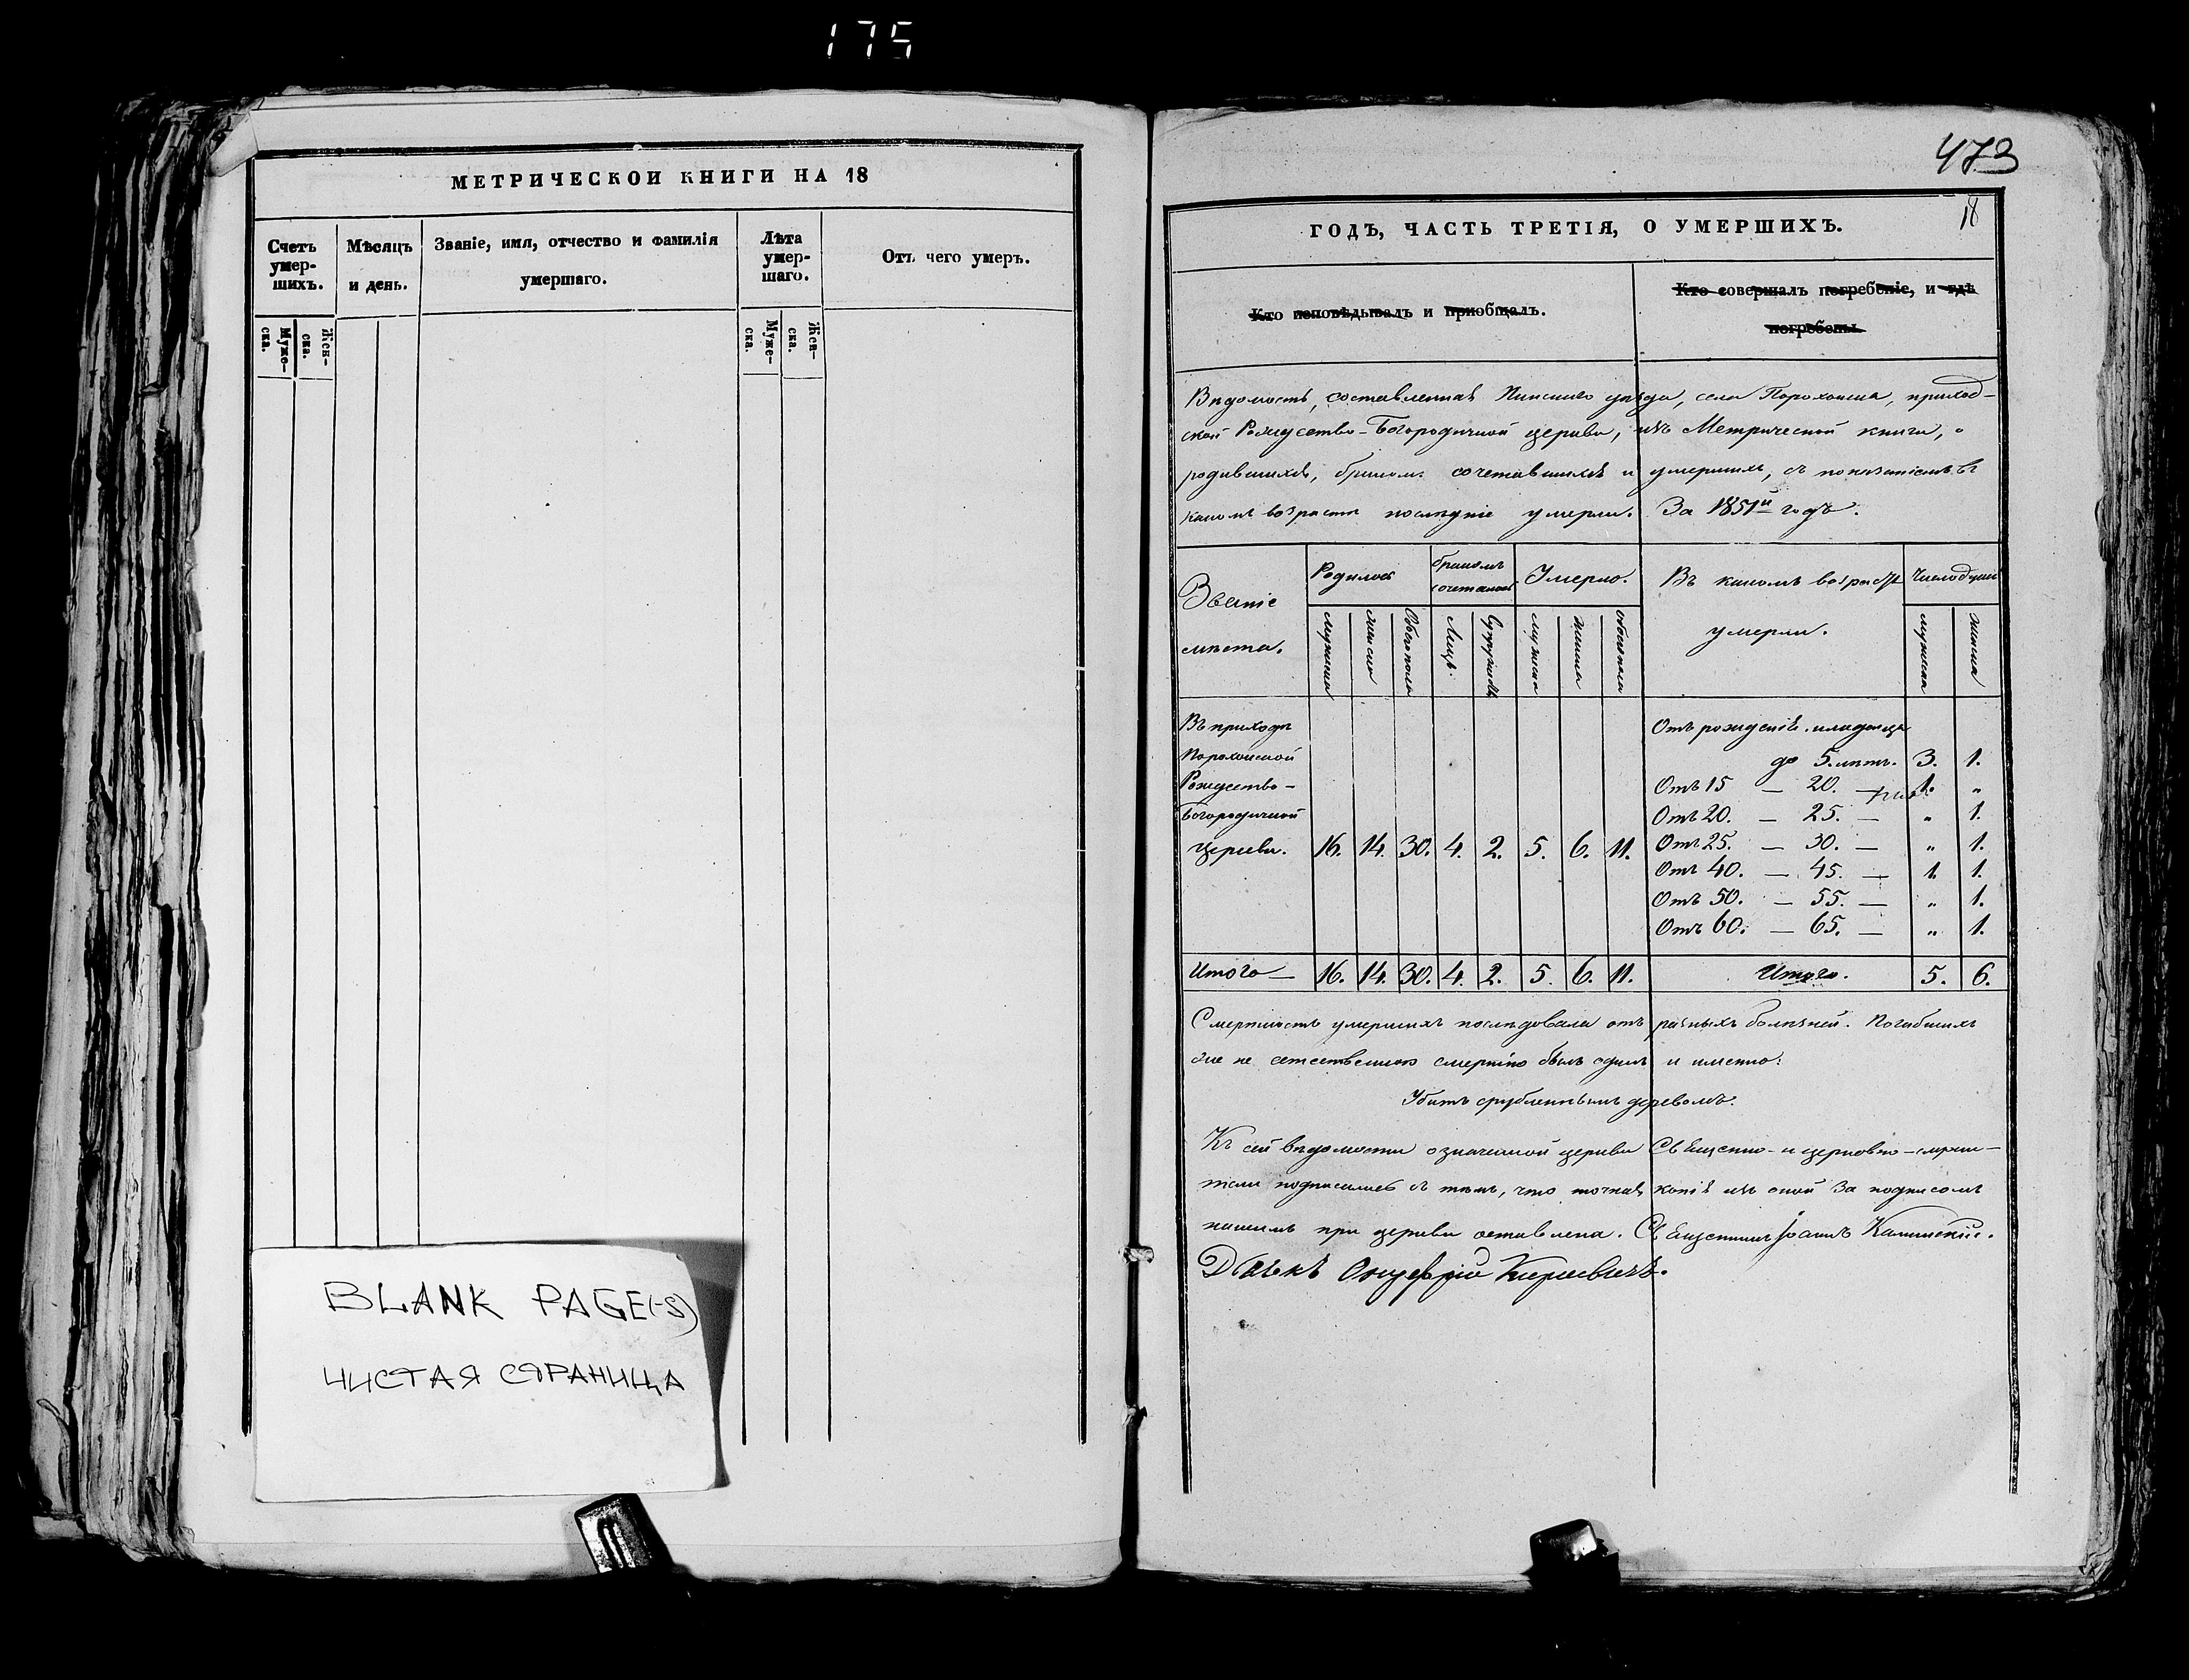 175
МЕТРИЧЕСКОЙ КНИГИ НА 18
Счетъ умер-шихъ.
Мѣсяцъ и день.
Званіе, имя, отчество и фамилія умершаго.
Лѣта умер-шаго.
Отъ чего умеръ.
Муже-ска.
Жен-ска.
Муже-ска.
Жен-ска.
BLANK PAGE(-S)
ЧИСТАЯ СТРАНИЦА
473
18
ГОДЪ, ЧАСТЬ ТРЕТІЯ, О УМЕРШИХЪ.
Кто исповѣдывалъ и приобщалъ.
Кто совершалъ погребеніе, и гдѣ погребены.
Вѣдомость, составленная Пинскаго уѣзда, села Порохонска, приход-
ской Рождество-Богородичной церкви, изъ Метрической книги, о
родившихся, бракомъ сочетавшихся и умершихъ, съ показаніемъ въ
какомъ возрастѣ послѣдніе умерли. За 1851й годъ.
Званіе мѣста.
Родилось
бракомъ сочеталось
Умерло.
Въ какомъ возрастѣ умерли.
Число душъ
мужеска
женска
Обоего пола
Лицъ.
Супружествъ
мужеска
женска
обоего пола
мужеска
женска
Въ приходѣ
Порохонской
Рождество-
Богородичной
церкви. 16. 14. 30. 4. 2. 5. 6. 11.
Отъ рожденія младенца
до 5. лѣтъ. 3. 1.
Отъ 15 — 20. — 1. „
Отъ 20. — 25. — „ 1.
Отъ 25. — 30. — „ 1.
Отъ 40. — 45. — 1. 1.
Отъ 50. — 55. — „ 1.
Отъ 60. — 65. — „ 1.
Итого — 16. 14. 30. 4. 2. 5. 6. 11. Итого. 5. 6.
Смертность умершихъ послѣдовала отъ разныхъ болѣзней. Погибшихъ
же не естественною смертію былъ одинъ и именно:
Убитъ срубленнымъ деревомъ.
Къ сей вѣдомости означенной церкви Священно- и церковно-служи-
тели подписались съ тѣмъ, что точная копія изъ оной за подписомъ
нашимъ при церкви оставлена. Священникъ Іоаннъ Калинскій.
Дьякъ Онуфрій